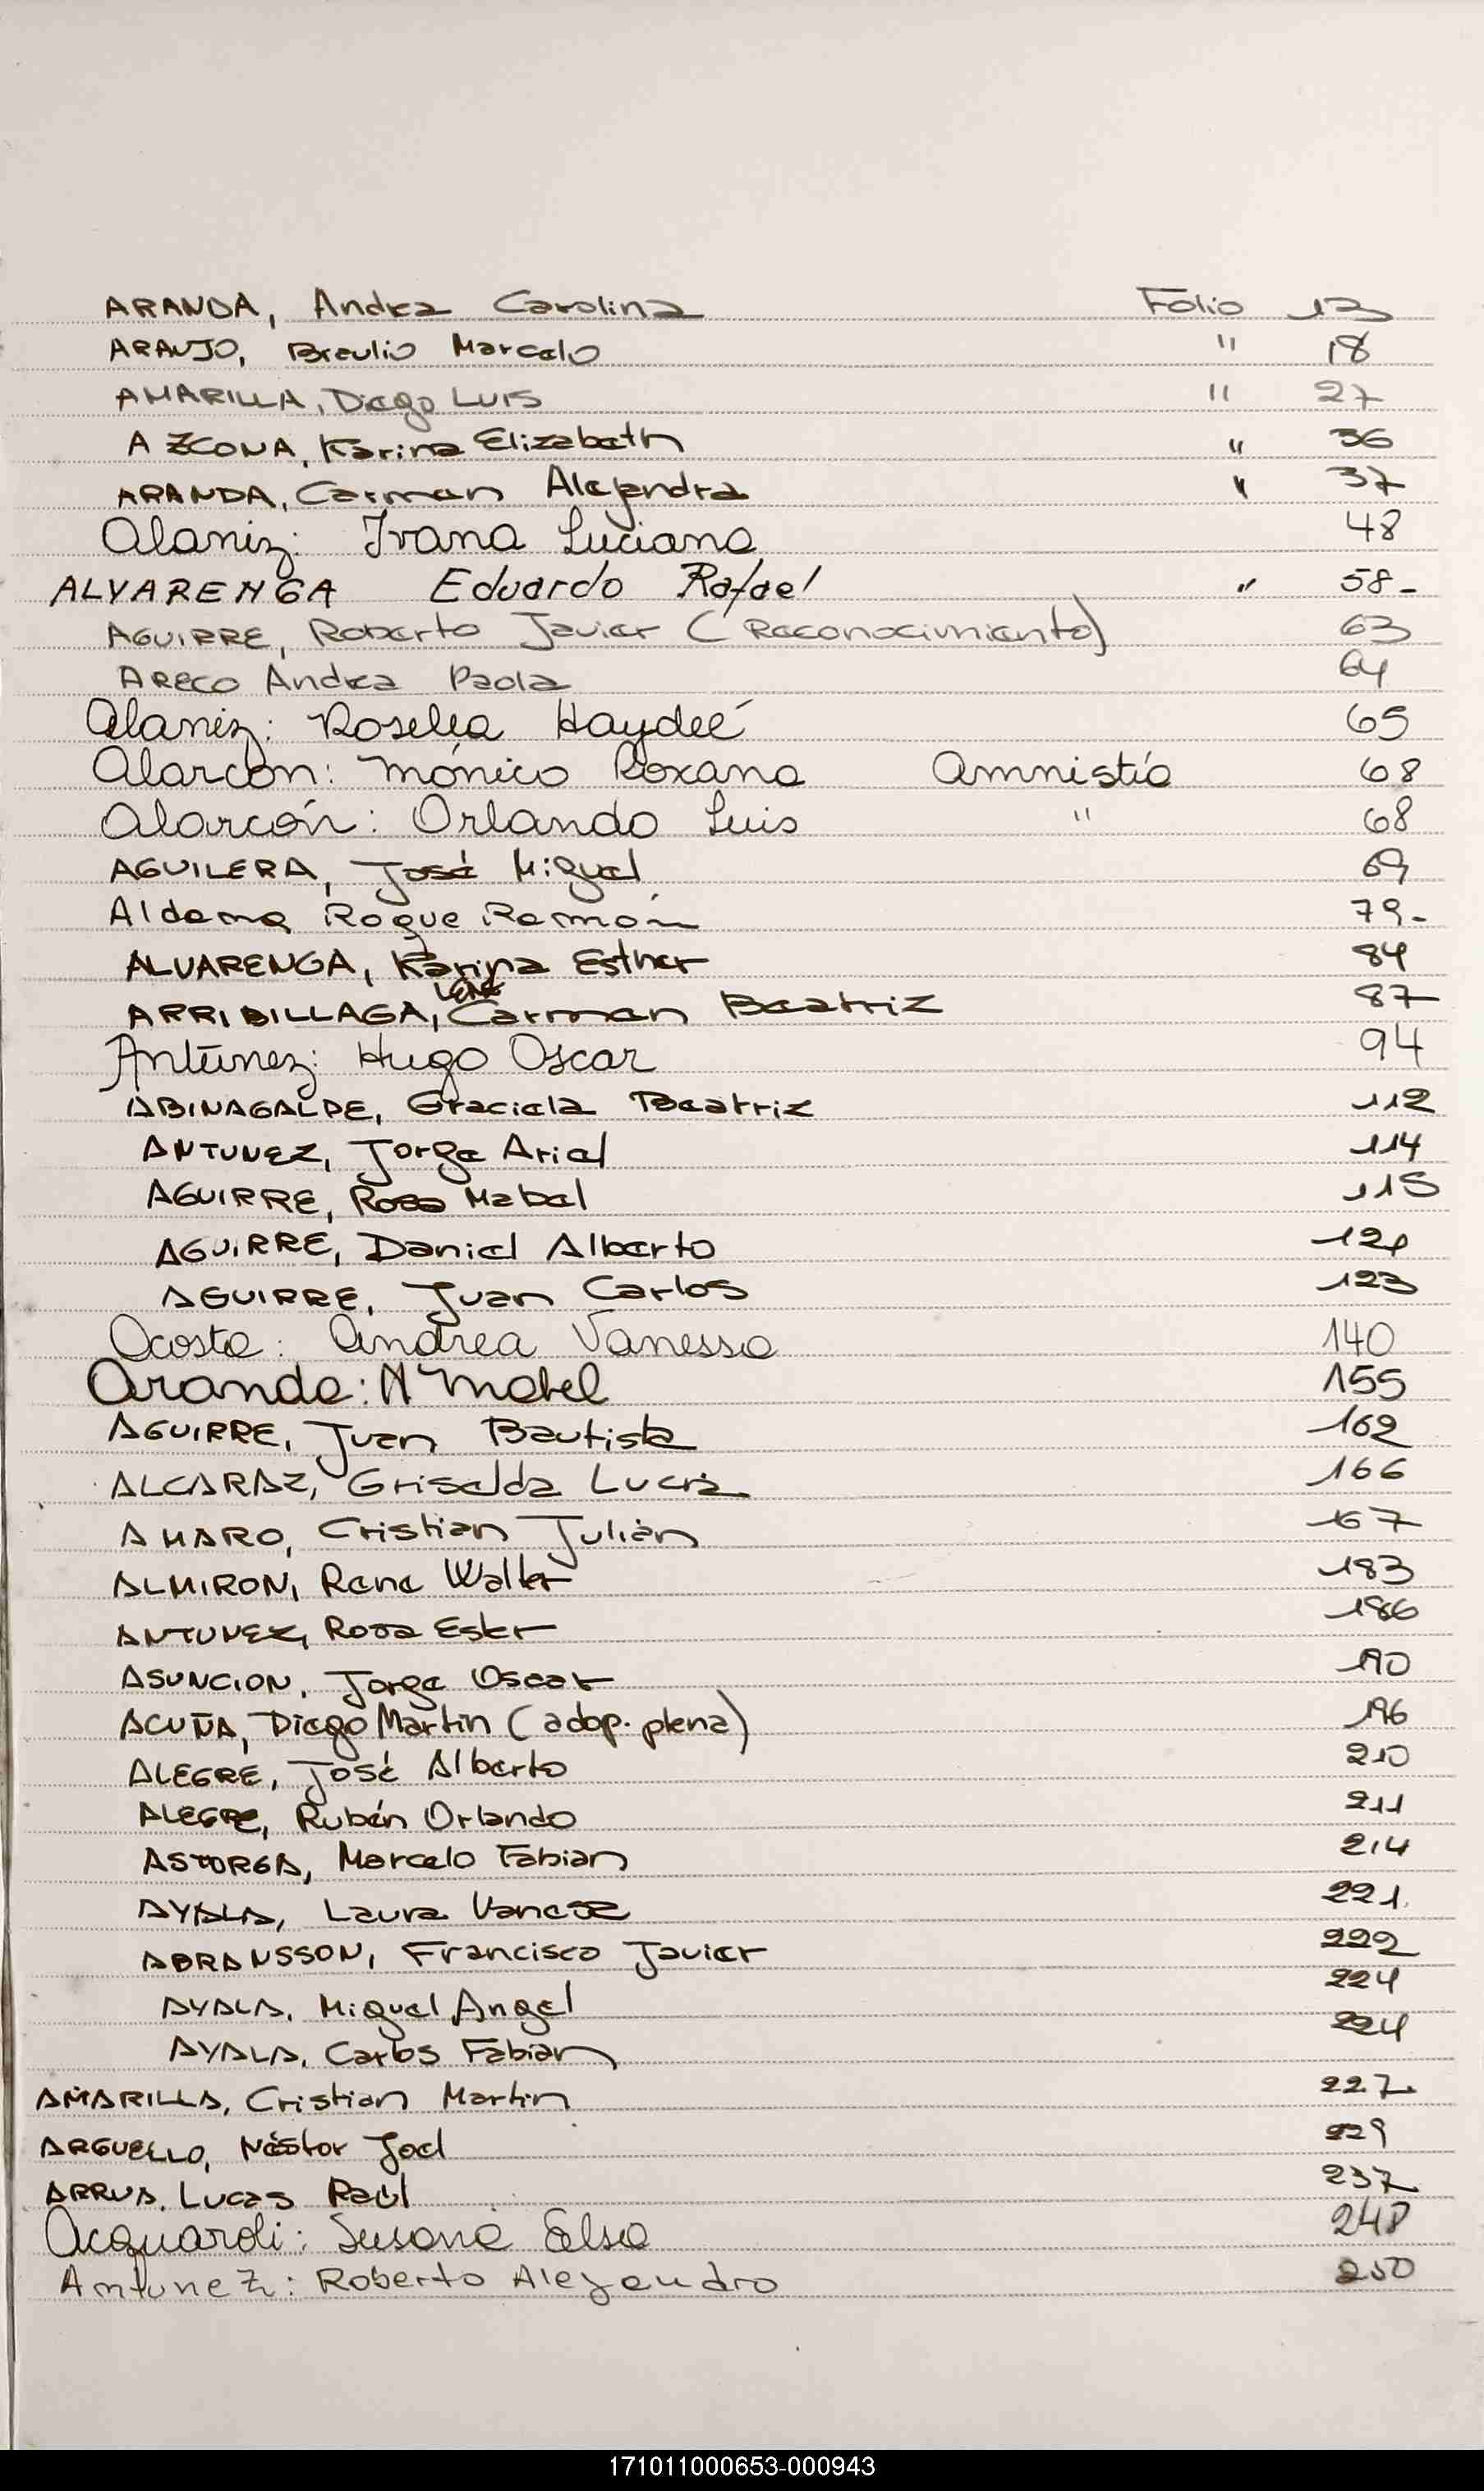 ARANDA, Andrea Carolina Folio 13
ARAUJO, Braulio Marcelo " 18
AMARILLA, Diego LUIS " 27
AZCONA, Karina Elizabeth " 36
ARANDA, Carmen Alejandra " 37
Alaniz: Ivana Luciana 48
ALVARENGA Eduardo Rafael " 58-
AGUIRRE, Roberto Javier (Reconocimiento) 63
ARECO Andrea Paola 64
Alaniz: Roselia Haydeé 65
Alarcón: Mónica Roxana Amnistía 68
Alarcón: Orlando Luis " 68
AGUILERA, José Miguel 69
Aldama Roque Ramón 79-
ALVARENGA, Karina Esther 84
ARRIBILLAGA, Carmen Beatriz 87
Antúnez: Hugo Oscar 94
ABINAGALDE, Graciela Beatriz 112
ANTUNEZ, Jorge Ariel 114
AGUIRRE, Rosa Mabel 115
AGUIRRE, Daniel Alberto 121
AGUIRRE, Juan Carlos 123
Acosta: Andrea Vanessa 140
Aranda: Mabel 155
AGUIRRE, Juan Bautista 162
ALCARAZ, Griselda Lucía 166
AMARO, Cristian Julián 167
ALMIRON, Rene Walter 183
ANTUNEZ, Rosa Ester 186
ASUNCION, Jorge Oscar 190
ACUÑA, Diego Martin (adop. plena) 196
ALEGRE, José Alberto 210
ALEGRE, Rubén Orlando 211
ASTORGA, Marcelo Fabian 214
AYALA, Laura Vanesa 221
ABRANSSON, Francisco Javier 222
AYALA, Miguel Angel 224
AYALA, Carlos Fabian 224
AMARILLA, Cristian Martin 227
ARGUELLO, Néstor Joel 229
ARRUA, Lucas Raúl 237
Acquaroli: Susana Elsa 248
Antunez: Roberto Alejandro 250
171011000653-000943